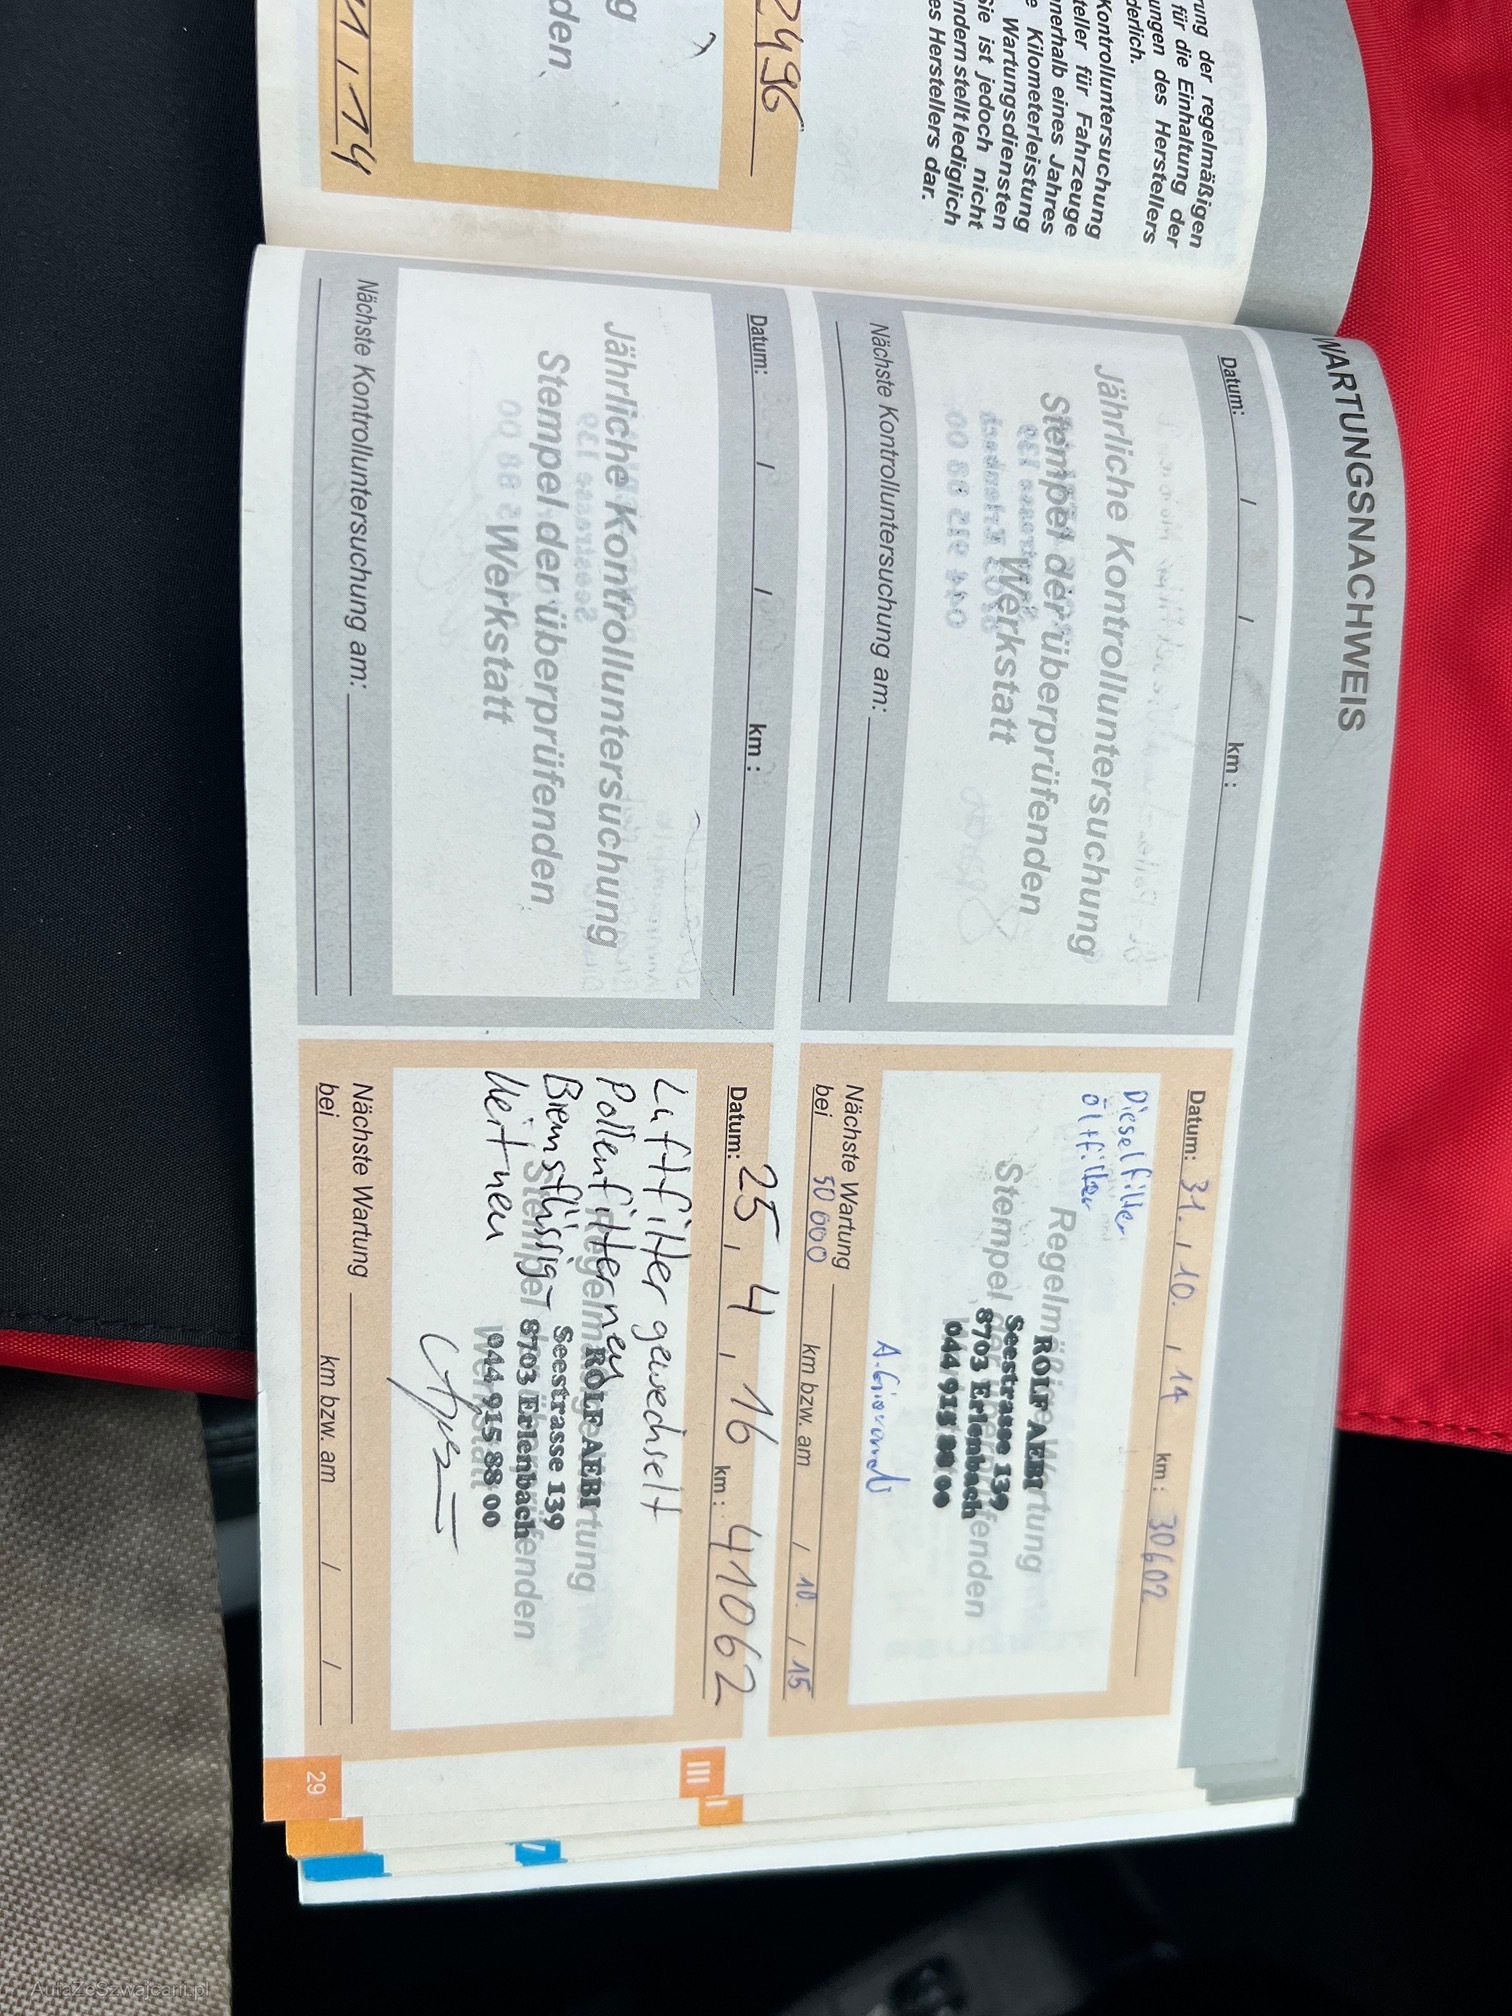 rung der regelmäßigen
für die Einhaltung der
ungen des Herstellers
derlich.
Kontrolluntersuchung
teller für Fahrzeuge
nnerhalb eines Jahres
e Kilometerleistung
Wartungsdiensten
Sie ist jedoch nicht
ndern stellt lediglich
es Herstellers dar.
2496
g
den
11 / 14
WARTUNGSNACHWEIS
Datum: / / km :
Jährliche Kontrolluntersuchung
Stempel der überprüfenden
Werkstatt
Nächste Kontrolluntersuchung am:
Datum: 31. / 10. / 14 km : 30602
Dieselfilter
Ölfilter
Regelmäßige Wartung
Stempel der überprüfenden
ROLF AEBI
Seestrasse 139
8703 Erlenbach
044 915 88 00
Nächste Wartung
bei 50 000 km bzw. am / 10. / 15
Datum: / / km :
Jährliche Kontrolluntersuchung
Stempel der überprüfenden
Werkstatt
Nächste Kontrolluntersuchung am:
Datum: 25 / 4 / 16 km : 41062
Luftfilter gewechselt
Pollenfilter neu
Bremsflüssig-
keit neu
Regelmäßige Wartung
Stempel der überprüfenden
Werkstatt
ROLF AEBI
Seestrasse 139
8703 Erlenbach
044 915 88 00
Nächste Wartung
bei km bzw. am / /
III
29
AutaZeSzwajcarii.pl